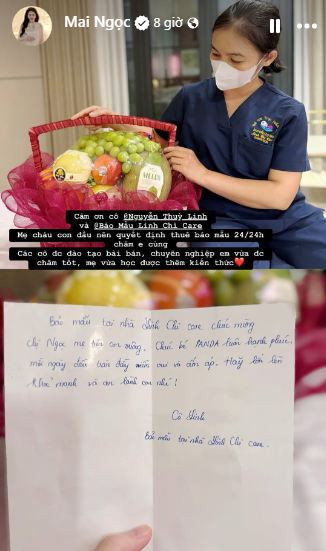 Mai Ngọc 8 giờ
Cảm ơn cô @Nguyễn Thuỳ Linh
và @Bảo Mẫu Linh Chi Care
Mẹ cháu con đầu nên quyết định thuê bảo mẫu 24/24h
chăm e cùng
Các cô đc đào tạo bài bản, chuyên nghiệp em vừa đc
chăm tốt, mẹ vừa học được thêm kiến thức❤️
Bảo mẫu tại nhà Linh Chi care chúc mừng
chị Ngọc mẹ tròn con vuông. Chúc bé PANDA luôn hạnh phúc,
mỗi ngày đều tràn đầy niềm vui và ấm áp. Hãy lớn lên
khoẻ mạnh và an lành con nhé!
Cô Linh
Bảo mẫu tại nhà Linh Chi care.